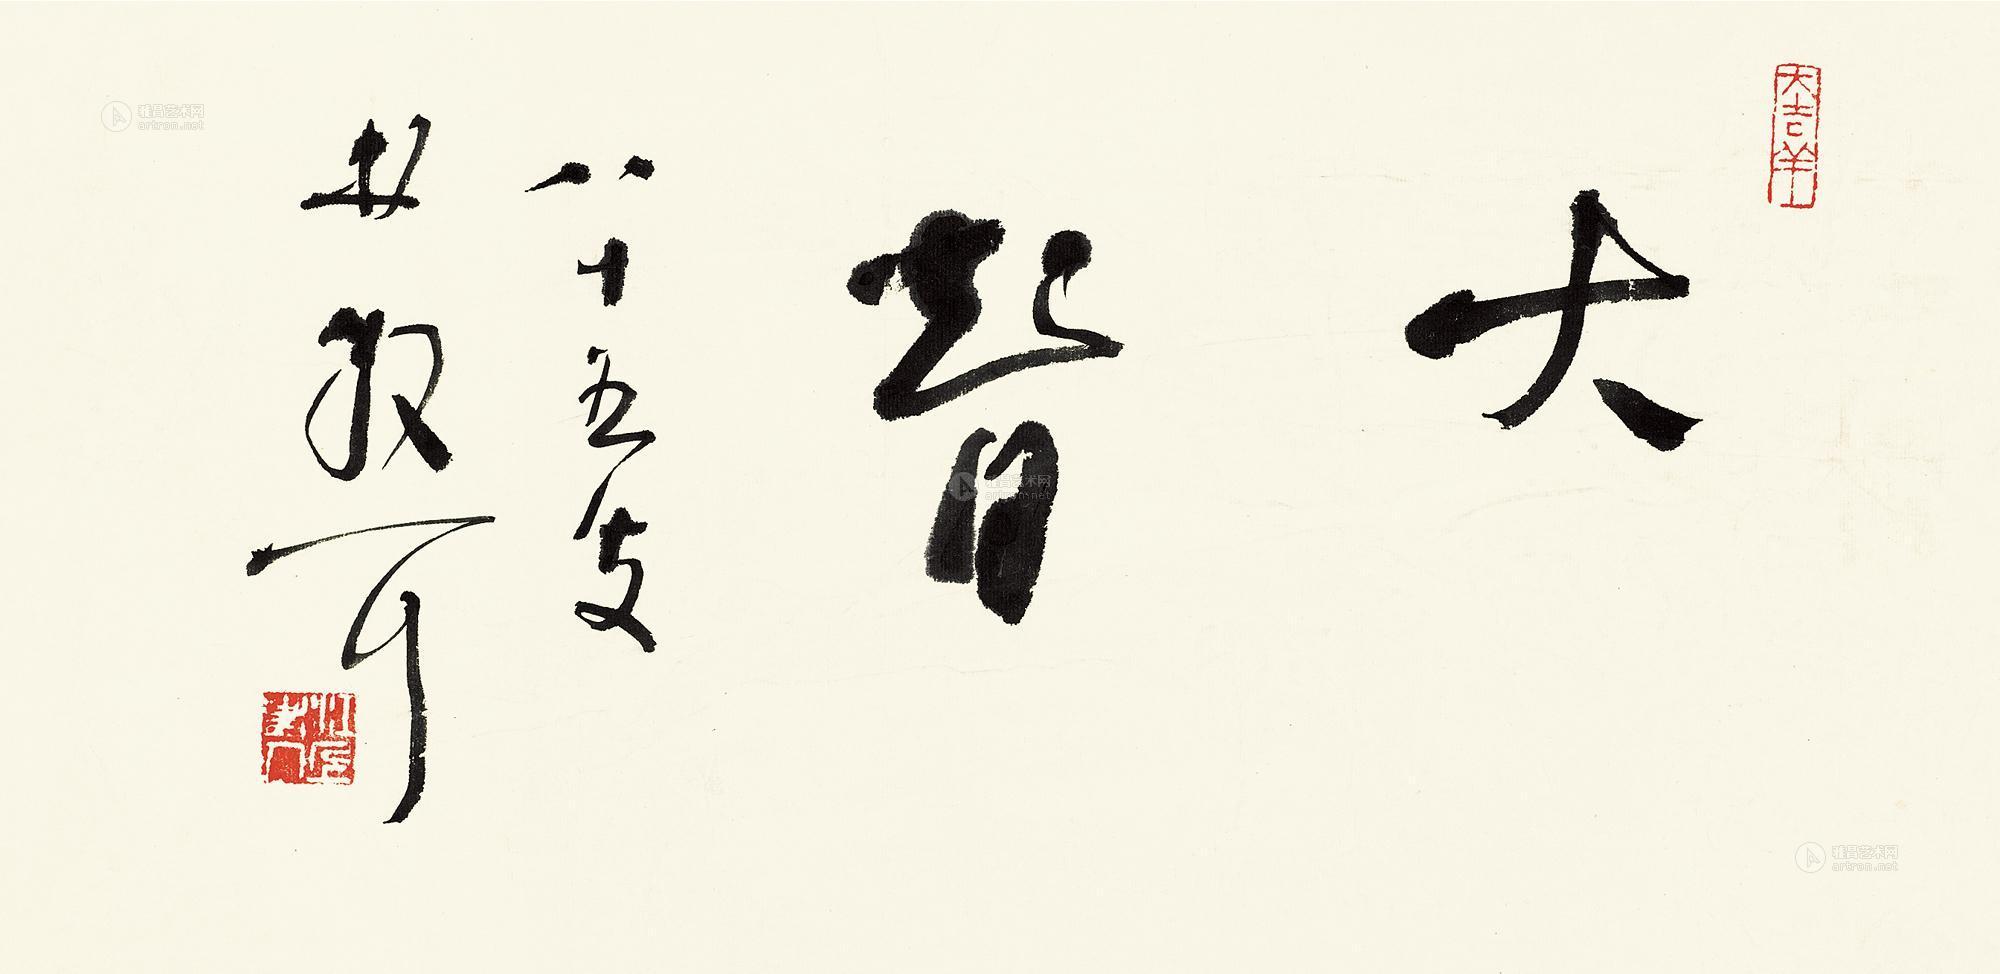 大吉羊
大智
八十五叟
林散耳
雅昌艺术网
artron.net
雅昌艺术网
artron.net
雅昌艺术网
artron.net